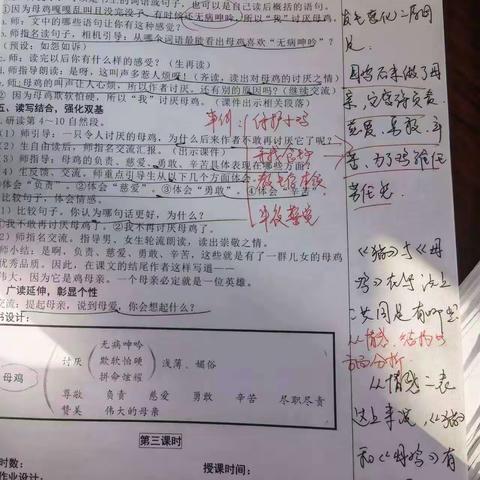 ①因为母鸡嘎嘎乱叫且没完没了,有时候还无病呻吟,所以"我"讨厌母鸡。
a.师:文中的哪些语句让你有这种感觉?
b.师指名读句子,相机引导:从哪个词语最能看出母鸡喜欢"无病呻吟"?
(预设:如怨如诉)
c.师:读完以后你有什么样的感受?(生再读)
d.师指导朗读:是呀,这叫声多惹人烦呀!(齐读,读出对母鸡的讨厌之情)
e.师:母鸡的叫声让人心烦,所以作者讨厌。还有别的原因吗?(继续交流)
② 因为母鸡欺软怕硬,所以"我"讨厌母鸡。(课件出示相关段落)
五、读写结合,强化双基
研读第 4~10 自然段。
(1)师引导:一只令人讨厌的母鸡,为什么后来作者不敢再讨厌它了呢?
(2)生自由读后,师指名交流汇报。(出示课件)
(3)师指导:母鸡的负责、慈爱、勇敢、辛苦具体表现在哪些方面?
(4)生反馈、交流。师重点引导生从以下几个方面体会
体会"负责"。②体会"慈爱"。③体会"勇敢"。④体会"辛苦"。
比较句子,体会情感。
1)比较句子。你认为哪句话更好,为什么?
①我不敢再讨厌母鸡了。②我不再讨厌母鸡了。
2)师指名交流,指导男、女生轮流朗读,读出崇敬之情。
师小结:是啊,负责、慈爱、勇敢、辛苦,这些就是有了一群儿女的母鸡
优秀品质。因此,在课文的结尾作者这样写道——
伟大,因为它是鸡母亲。一个母亲必定就是一位英雄。
广读延伸,彰显个性
交流:提起母亲,说到母爱,你会想起什么?
书设计:
无病呻吟
讨厌 欺软怕硬 浅薄、媚俗
拼命炫耀
母鸡
尊敬 负责 慈爱 勇敢 辛苦 尽职尽责
赞美 伟大的母亲
第三课时
时数: 授课时间:
作业设计:
事例
半夜警觉
母鸡后来做了母
《猫》与《母
鸡》在写法上
共同是有哪些
从情感、结构
方面分析
从情感上表
达上来说,《猫》
和《母鸡》有